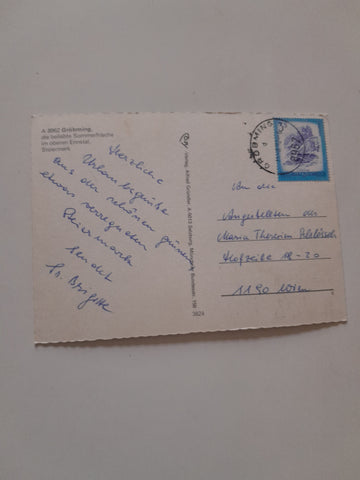 A 8962 Gröbming,
die beliebte Sommerfrische
im oberen Ennstal,
Steiermark
Herzliche
Urlaubsgrüße
aus der schönen grünen
etwas verregneten
Steiermark
sendet
Sr. Brigitte
Verlag Alfred Gründler A 5013 Salzburg
3624
GRÖBMING
An die
Angestellten des
Maria Theresien Schlössel
Hofzeile 18-20
1190 Wien